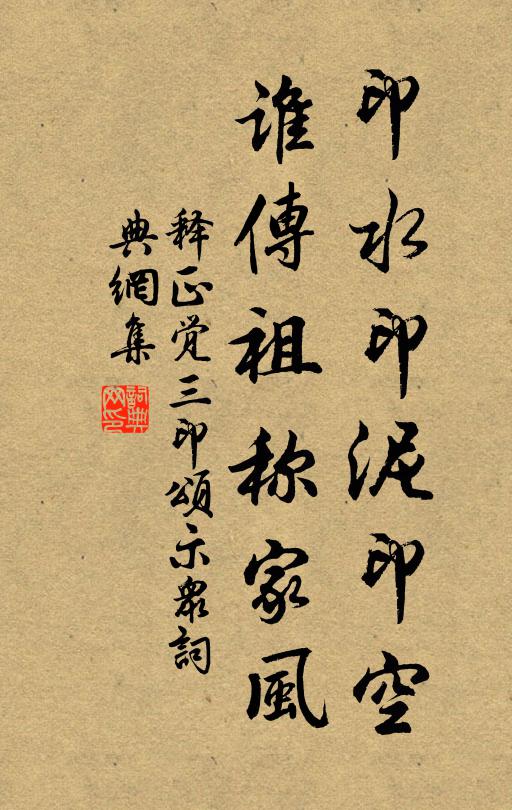 印水印泥印空
谁傳祖称家風
释正覚三印頌示衆詞
典網集
詞典网印